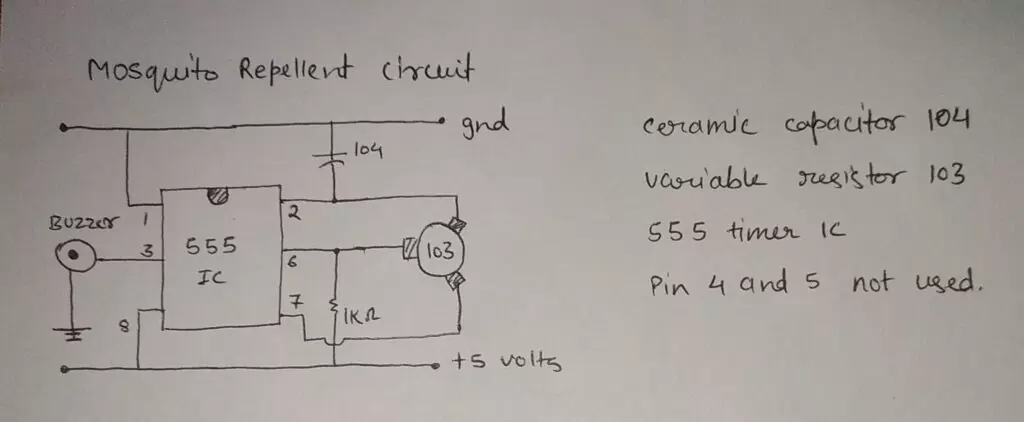 Mosquito Repellent Circuit
gnd
104
Buzzer
1
2
3
555
IC
6
103
7
1KΩ
8
+5 volts
ceramic capacitor 104
variable resistor 103
555 timer IC
Pin 4 and 5 not used.